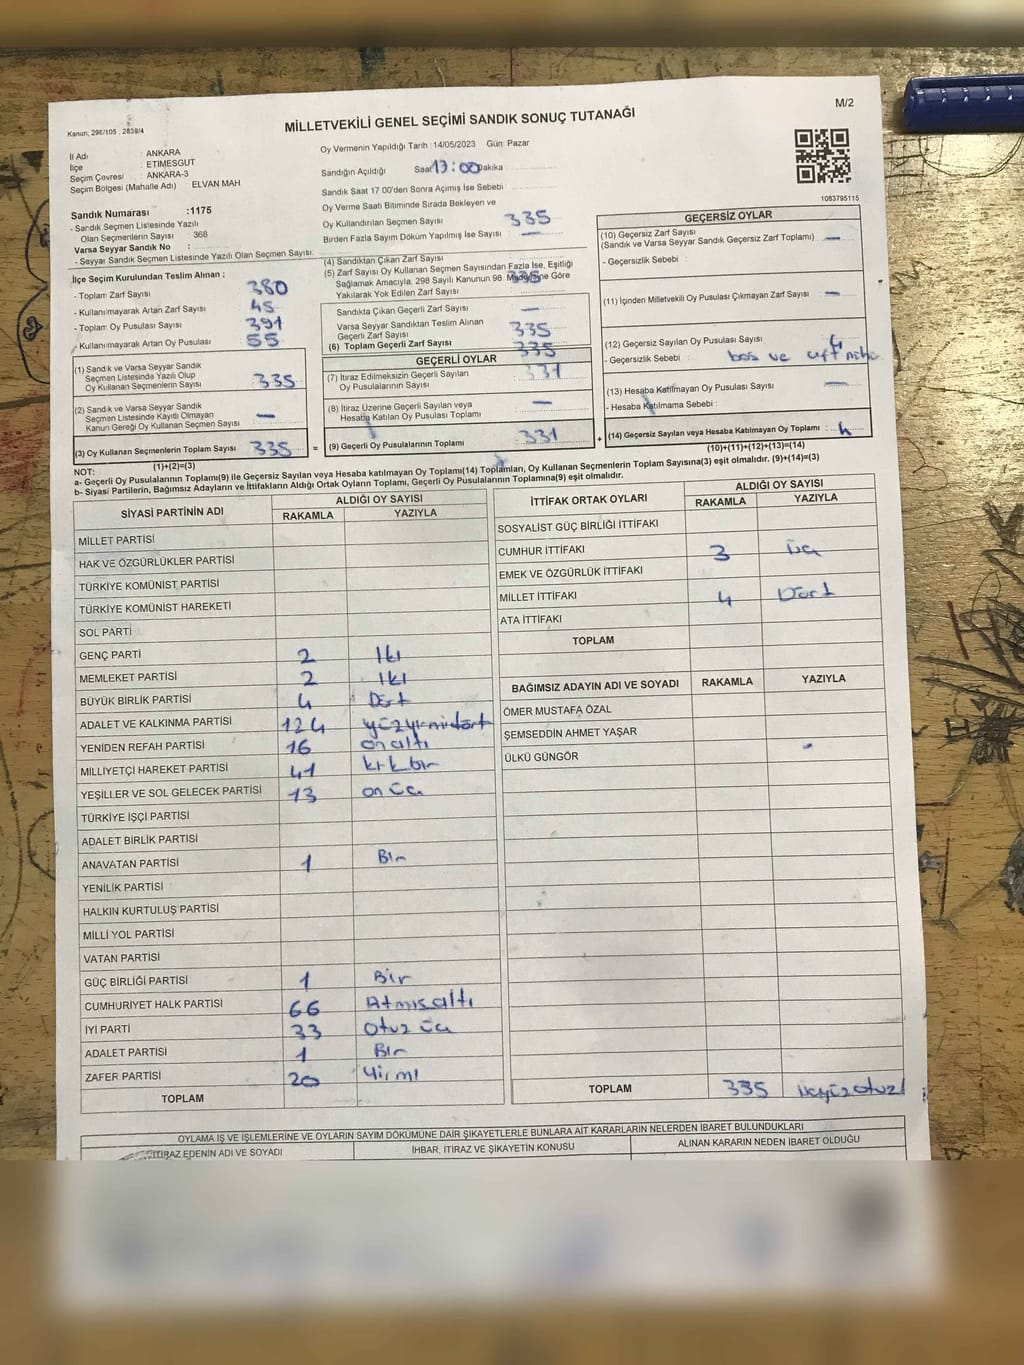 M/2
Kanun: 298/105 , 2839/4
MİLLETVEKİLİ GENEL SEÇİMİ SANDIK SONUÇ TUTANAĞI
İl Adı : ANKARA
İlçe : ETİMESGUT
Seçim Çevresi : ANKARA-3
Seçim Bölgesi (Mahalle Adı) : ELVAN MAH
Sandık Numarası :1175
- Sandık Seçmen Listesinde Yazılı
Olan Seçmenlerin Sayısı : 368
Varsa Seyyar Sandık No :
- Seyyar Sandık Seçmen Listesinde Yazılı Olan Seçmen Sayısı:
Oy Vermenin Yapıldığı Tarih :14/05/2023 Gün: Pazar
Sandığın Açıldığı Saat 17:00 Dakika
Sandık Saat 17 00'den Sonra Açımış İse Sebebi :
Oy Verme Saati Bitiminde Sırada Bekleyen ve
Oy Kullandırılan Seçmen Sayısı : 335
Birden Fazla Sayım Döküm Yapılmış İse Sayısı : —
1083795115
İlçe Seçim Kurulundan Teslim Alınan :
- Toplam Zarf Sayısı : 380
- Kullanılmayarak Artan Zarf Sayısı : 45
- Toplam Oy Pusulası Sayısı : 391
- Kullanılmayarak Artan Oy Pusulası : 55
(1) Sandık ve Varsa Seyyar Sandık
Seçmen Listesinde Yazılı Olup
Oy Kullanan Seçmenlerin Sayısı : 335
(2) Sandık ve Varsa Seyyar Sandık
Seçmen Listesinde Kayıtlı Olmayan
Kanun Gereği Oy Kullanan Seçmen Sayısı : —
(3) Oy Kullanan Seçmenlerin Toplam Sayısı : 335
(1)+(2)=(3)
(4) Sandıktan Çıkan Zarf Sayısı : 335
(5) Zarf Sayısı Oy Kullanan Seçmen Sayısından Fazla İse, Eşitliği
Sağlamak Amacıyla, 298 Sayılı Kanunun 98. Maddesine Göre
Yakılarak Yok Edilen Zarf Sayısı : —
Sandıkta Çıkan Geçerli Zarf Sayısı : 335
Varsa Seyyar Sandıktan Teslim Alınan
Geçerli Zarf Sayısı :
(6) Toplam Geçerli Zarf Sayısı : 335
GEÇERLİ OYLAR
(7) İtiraz Edilmeksizin Geçerli Sayılan
Oy Pusulalarının Sayısı : 331
(8) İtiraz Üzerine Geçerli Sayılan veya
Hesaba Katılan Oy Pusulası Toplamı : —
= (9) Geçerli Oy Pusulalarının Toplamı : 331
GEÇERSİZ OYLAR
(10) Geçersiz Zarf Sayısı
(Sandık ve Varsa Seyyar Sandık Geçersiz Zarf Toplamı) : —
- Geçersizlik Sebebi :
(11) İçinden Milletvekili Oy Pusulası Çıkmayan Zarf Sayısı : —
(12) Geçersiz Sayılan Oy Pusulası Sayısı : 4
- Geçersizlik Sebebi : boş ve çift mühür
(13) Hesaba Katılmayan Oy Pusulası Sayısı : —
- Hesaba Katılmama Sebebi :
+ (14) Geçersiz Sayılan veya Hesaba Katılmayan Oy Toplamı : 4
(10)+(11)+(12)+(13)=(14)
NOT:
a- Geçerli Oy Pusulalarının Toplamı(9) ile Geçersiz Sayılan veya Hesaba katılmayan Oy Toplamı(14) Toplamları, Oy Kullanan Seçmenlerin Toplam Sayısına(3) eşit olmalıdır. (9)+(14)=(3)
b- Siyasi Partilerin, Bağımsız Adayların ve İttifakların Aldığı Ortak Oyların Toplamı, Geçerli Oy Pusulalarının Toplamına(9) eşit olmalıdır.
SİYASİ PARTİNİN ADI ALDIĞI OY SAYISI
RAKAMLA YAZIYLA
MİLLET PARTİSİ
HAK VE ÖZGÜRLÜKLER PARTİSİ
TÜRKİYE KOMÜNİST PARTİSİ
TÜRKİYE KOMÜNİST HAREKETİ
SOL PARTİ
GENÇ PARTİ 2 İki
MEMLEKET PARTİSİ 2 İki
BÜYÜK BİRLİK PARTİSİ 4 Dört
ADALET VE KALKINMA PARTİSİ 124 yüzyirmidört
YENİDEN REFAH PARTİSİ 16 on altı
MİLLİYETÇİ HAREKET PARTİSİ 41 kırk bir
YEŞİLLER VE SOL GELECEK PARTİSİ 13 on üç
TÜRKİYE İŞÇİ PARTİSİ
ADALET BİRLİK PARTİSİ
ANAVATAN PARTİSİ 1 Bir
YENİLİK PARTİSİ
HALKIN KURTULUŞ PARTİSİ
MİLLİ YOL PARTİSİ
VATAN PARTİSİ
GÜÇ BİRLİĞİ PARTİSİ 1 Bir
CUMHURİYET HALK PARTİSİ 66 Atmışaltı
İYİ PARTİ 33 otuz üç
ADALET PARTİSİ 1 Bir
ZAFER PARTİSİ 20 Yirmi
TOPLAM
İTTİFAK ORTAK OYLARI ALDIĞI OY SAYISI
RAKAMLA YAZIYLA
SOSYALİST GÜÇ BİRLİĞİ İTTİFAKI
CUMHUR İTTİFAKI 3 üç
EMEK VE ÖZGÜRLÜK İTTİFAKI
MİLLET İTTİFAKI 4 Dört
ATA İTTİFAKI
TOPLAM
BAĞIMSIZ ADAYIN ADI VE SOYADI RAKAMLA YAZIYLA
ÖMER MUSTAFA ÖZAL
ŞEMSEDDİN AHMET YAŞAR
ÜLKÜ GÜNGÖR
TOPLAM 335
OYLAMA İŞ VE İŞLEMLERİNE VE OYLARIN SAYIM DÖKÜMÜNE DAİR ŞİKAYETLERLE BUNLARA AİT KARARLARIN NELERDEN İBARET BULUNDUKLARI
İTİRAZ EDENİN ADI VE SOYADI İHBAR, İTİRAZ VE ŞİKAYETİN KONUSU ALINAN KARARIN NEDEN İBARET OLDUĞU